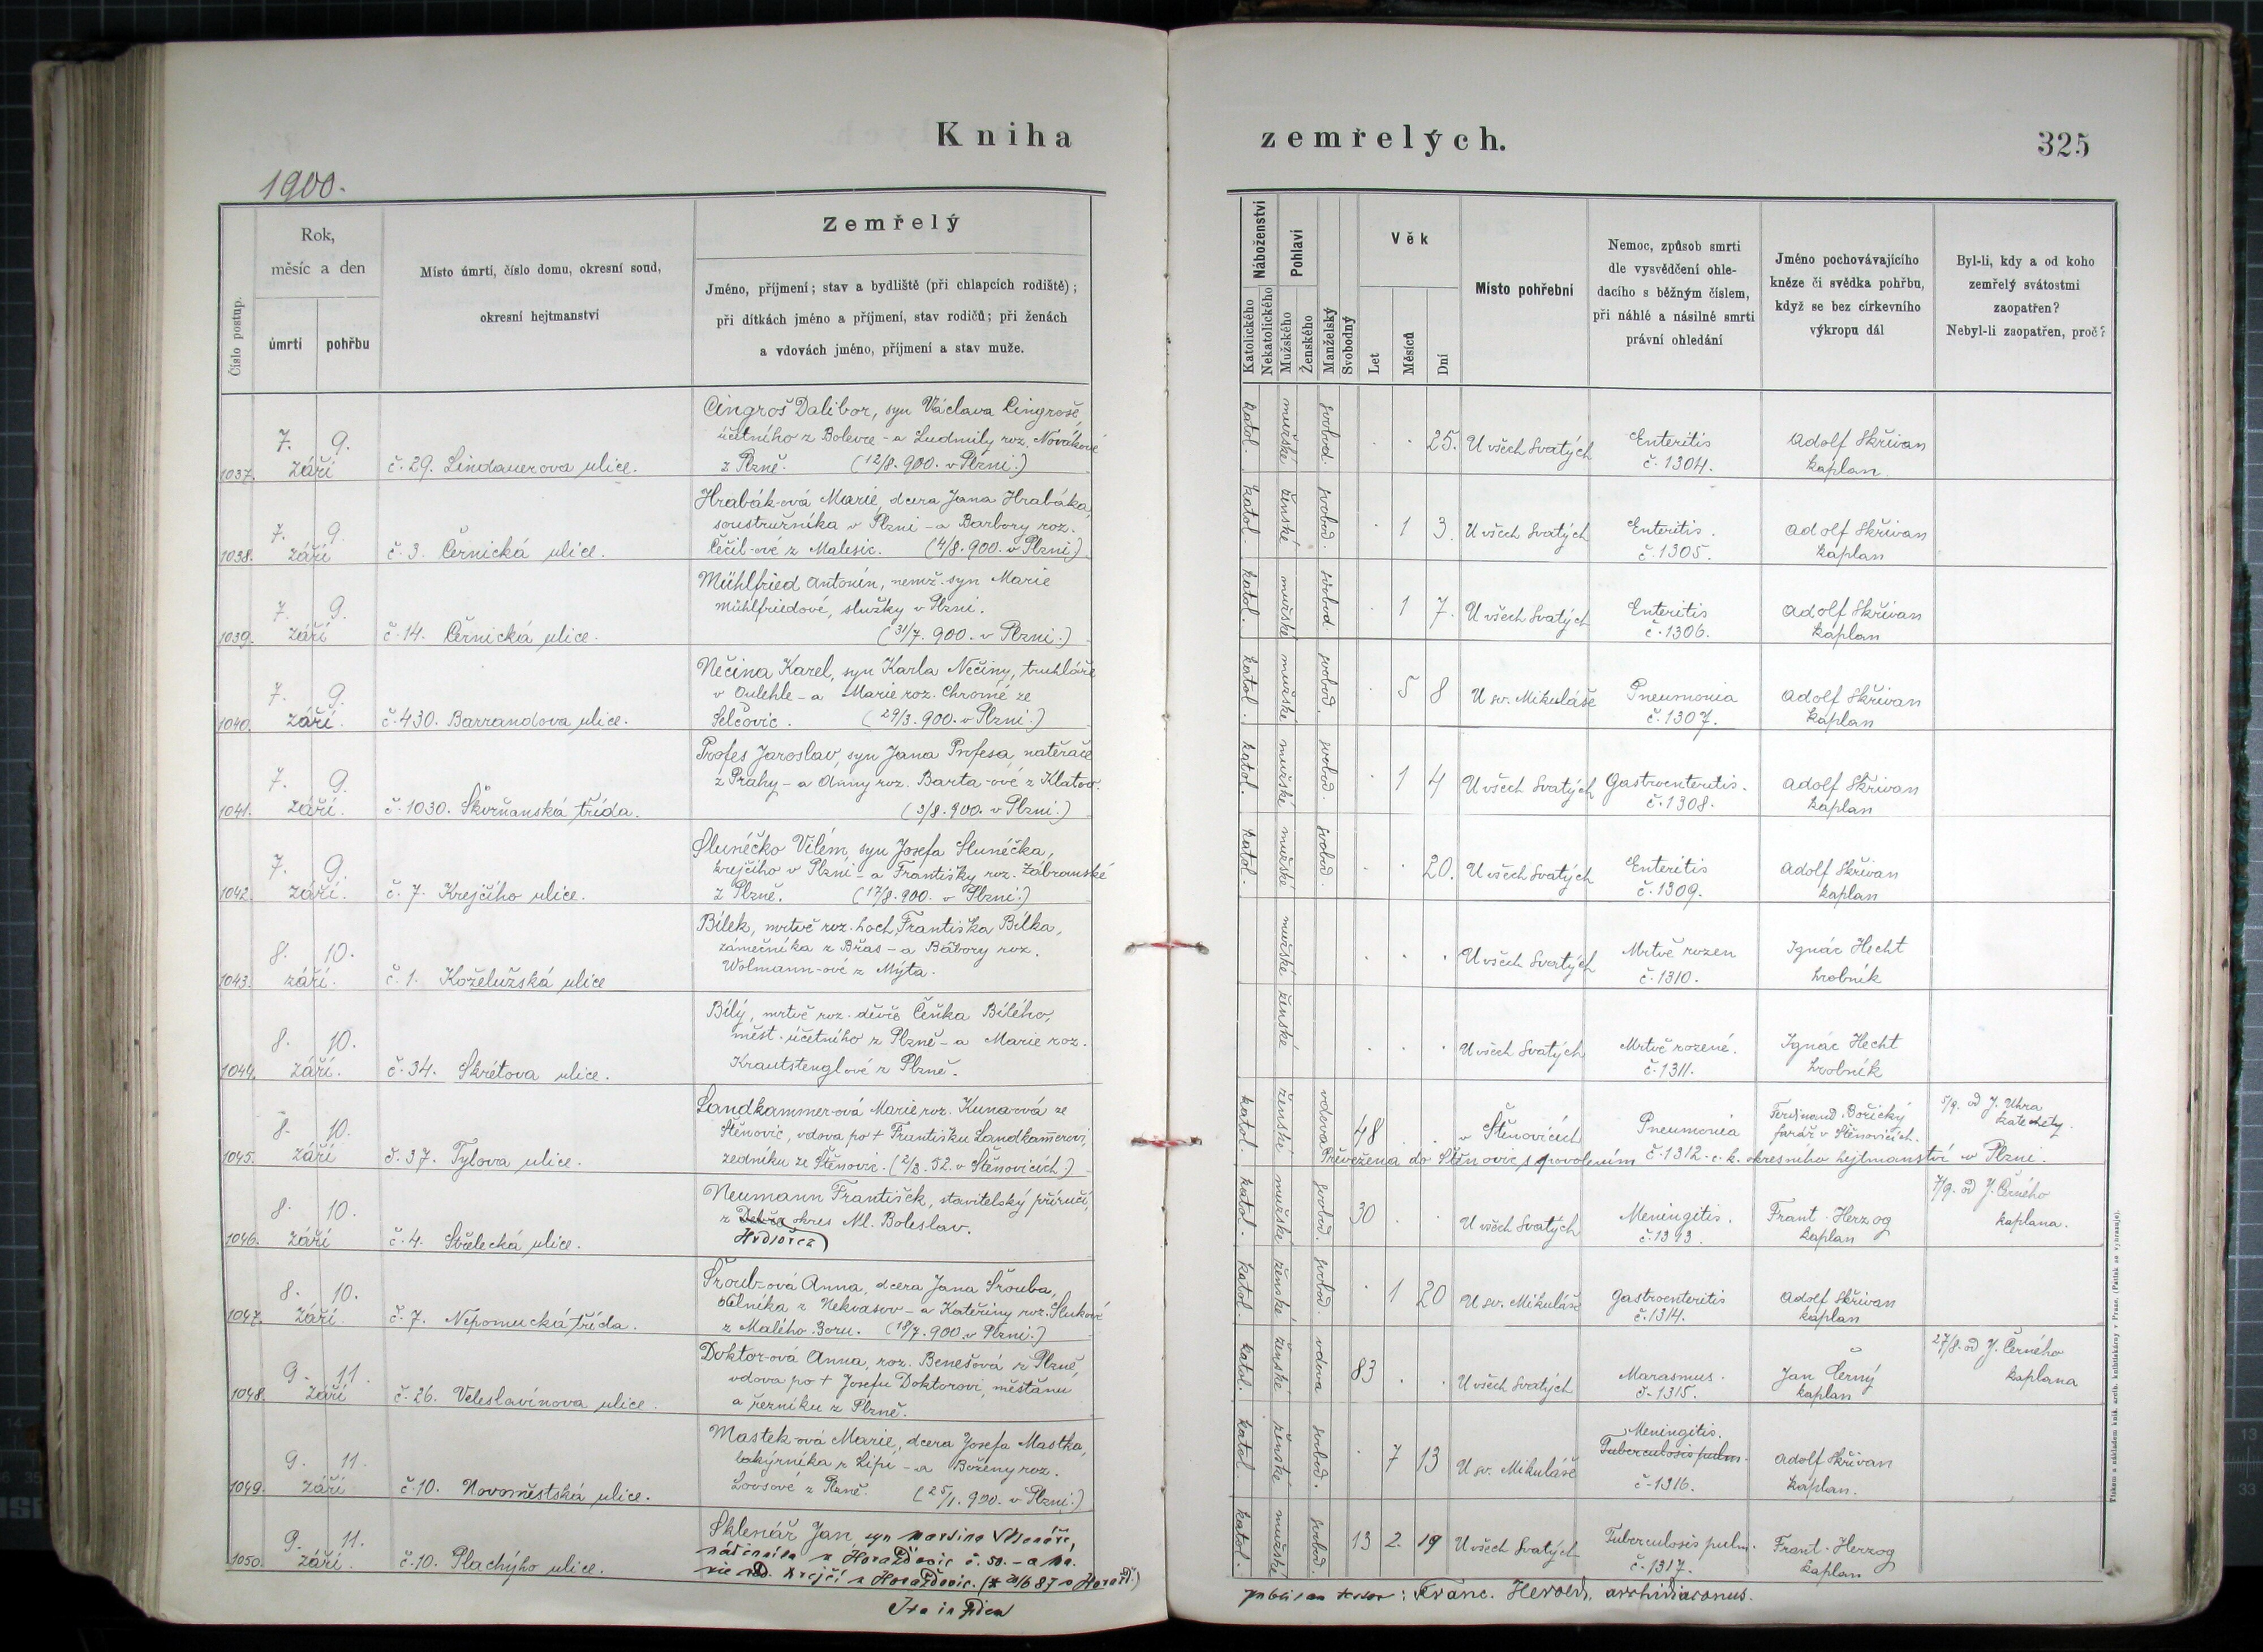 Kniha
zemřelých.
325
1900.
Číslo postup.
Rok,
měsíc a den
úmrtí
pohřbu
Místo úmrtí, číslo domu, okresní soud,
okresní hejtmanství
Zemřelý
Jméno, příjmení; stav a bydliště (při chlapcích rodiště);
při dítkách jméno a příjmení, stav rodičů; při ženách
a vdovách jméno, příjmení a stav muže.
Náboženství
Katolického
Nekatolického
Pohlaví
Mužského
Ženského
Manželský
Svobodný
Věk
Let
Měsíců
Dní
Místo pohřební
Nemoc, způsob smrti
dle vysvědčení ohle-
dacího s běžným číslem,
při náhlé a násilné smrti
právní ohledání
Jméno pochovávajícího
kněze či svědka pohřbu,
když se bez církevního
výkropu dál
Byl-li, kdy a od koho
zemřelý svátostmi
zaopatřen?
Nebyl-li zaopatřen, proč?
Cingroš Dalibor, syn Václava Cingroše,
účetního z Bolevce - a Ludmily roz. Novákové
z Plzně. (12/8. 900. v Plzni.)
1037. 7. září 9. č. 29. Lindauerova ulice.
katol. mužské svobod. 25. U všech Svatých Enteritis č. 1304. Adolf Skřivan kaplan.
Hrabák-ová Marie, dcera Jana Hrabáka,
soustružníka v Plzni - a Barbory roz.
Čečil-ové z Malesic. (4/8. 900. v Plzni)
1038. 7. září 9. č. 3. Černická ulice.
katol. ženské svobod. 1 3. U všech Svatých Enteritis. č. 1305. Adolf Skřivan kaplan
Mühlfried Antonín, nemž. syn Marie
Mühlfriedové, služky v Plzni.
(31/7. 900. v Plzni.)
1039. 7. září 9. č. 14. Černická ulice.
katol. mužské svobod. 1 7. U všech Svatých Enteritis č. 1306. Adolf Skřivan kaplan
Nečina Karel, syn Karla Nečiny, truhláře
v Oulehle - a Marie roz. Chromé ze
Selčovic. (29/3. 900. v Plzni.)
1040. 7. září. 9. č. 430. Barrandova ulice.
katol. mužské svobod. 5 8 U sv. Mikuláše Pneumonia č. 1307. Adolf Skřivan kaplan
Profes Jaroslav, syn Jana Profesa, natěrače
z Prahy - a Anny roz. Barta-ové z Klatov.
(3/8. 900. v Plzni.)
1041. 7. září. 9. č. 1030. Skvrňanská třída.
katol. mužské svobod. 1 4 U všech Svatých Gastroenteritis. č. 1308. Adolf Skřivan kaplan
Slunéčko Vilém, syn Josefa Slunéčka,
krejčího v Plzni - a Františky roz. Zábranské
z Plzně. (17/8. 900. v Plzni.)
1042. 7. září. 9. č. 7. Krejčího ulice.
katol. mužské svobod. 20. U všech Svatých Enteritis č. 1309. Adolf Skřivan kaplan
Bílek, mrtvě roz. hoch Františka Bílka,
zámečníka z Břas - a Bábory roz.
Wolmann-ové z Mýta.
1043. 8. září. 10. č. 1. Koželužská ulice
mužské U všech Svatých Mrtvě rozen č. 1310. Ignác Hecht hrobník
Bílý, mrtvě roz. děvče Čeňka Bílého,
měst. účetního z Plzně - a Marie roz.
Krautstenglové z Plzně.
1044. 8. září. 10. č. 34. Skrétova ulice.
ženské U všech Svatých Mrtvě rozené. č. 1311. Ignác Hecht hrobník
Landkammer-ová Marie roz. Kuna-ová ze
Štěnovic, vdova po † Františku Landkamerovi,
zedníku ze Štěnovic. (2/3. 52. v Štěnovicích.)
1045. 8. září 10. č. 37. Tylova ulice.
katol. ženské vdova 48 v Štěnovicích Pneumonia Ferdinand Bořický farář v Štěnovicích. 5/9. od J. Uhra katechety.
Převežena do Štěnovic s povolením č. 1312 c. k. okresního hejtmanství v Plzni.
Neumann František, stavitelský příručí,
z okres Ml. Boleslav.
Hrdlořez
1046. 8. září 10. č. 4. Střelecká ulice.
katol. mužské svobod. 30 U všech Svatých Meningitis. č. 1313. Frant. Herzog kaplan 7/9. od J. Černého kaplana.
Šroub-ová Anna, dcera Jana Šrouba,
dělníka z Nekvasov - a Kateřiny roz. Slukové
z Malého Boru. (18/7. 900. v Plzni.)
1047. 8. září 10. č. 7. Nepomucká třída.
katol. ženské svobod. 1 20 U sv. Mikuláše Gastroenteritis č. 1314. Adolf Skřivan kaplan
Doktor-ová Anna, roz. Benešová z Plzně,
vdova po † Josefu Doktorovi, měšťanu
a řezníku z Plzně.
1048. 9. září 11. č. 26. Veleslavínova ulice.
katol. ženské vdova 83 U všech Svatých Marasmus. č. 1315. Jan Černý kaplan 27/8. od J. Černého kaplana
Mastek-ová Marie, dcera Josefa Mastka,
lakýrníka z Lipí - a Boženy roz.
Lovsové z Plzně. (25/1. 900. v Plzni.)
1049. 9. září 11. č. 10. Novoměstská ulice.
katol. ženské svobod. 7 13 U sv. Mikuláše Meningitis. Tuberculosis pulm. č. 1316. Adolf Skřivan kaplan.
Sklenář Jan, syn Martina Sklenáře,
nádeníka z Horažďovic č. 50. - a Ma-
rie roz. Krejčí z Horažďovic. (* 21/6 87 v Horažď.)
1050. 9. září. 11. č. 10. Plachýho ulice.
katol. mužské svobod. 13 2. 19 U všech Svatých Tuberculosis pulm. č. 1317. Frant. Herzog kaplan
Ita in fidem
: Franc. Herold, archidiaconus.